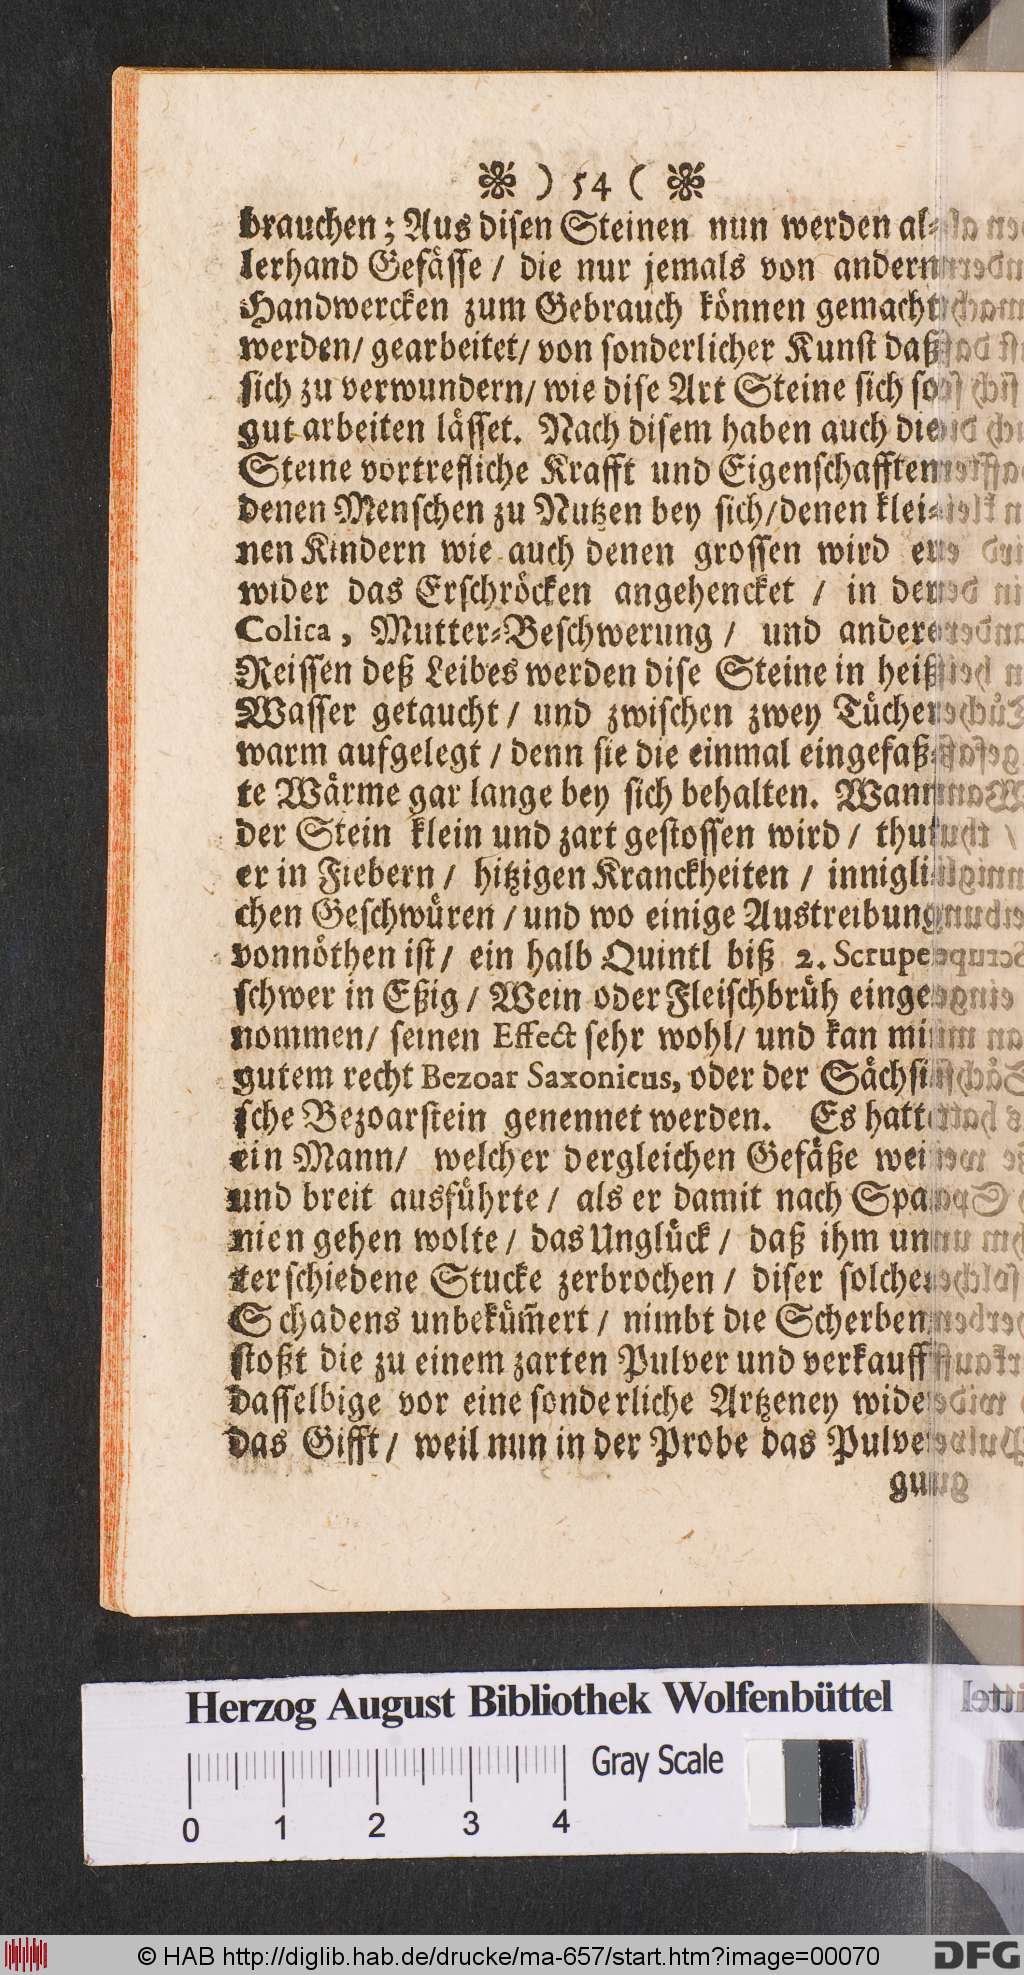 ) 54 (
brauchen; Aus disen Steinen nun werden al-
lerhand Gefässe / die nur jemals von andern
Handwercken zum Gebrauch können gemacht
werden/ gearbeitet/ von sonderlicher Kunst daß
sich zu verwundern/ wie dise Art Steine sich so
gut arbeiten lässet. Nach disem haben auch die
Steine vortrefliche Krafft und Eigenschafften
denen Menschen zu Nutzen bey sich/denen klei-
nen Kindern wie auch denen grossen wird er
wider das Erschröcken angehencket / in der
Colica, Mutter-Beschwerung / und andere
Reissen deß Leibes werden dise Steine in heiß
Wasser getaucht / und zwischen zwey Tücher
warm aufgelegt / denn sie die einmal eingefaß-
te Wärme gar lange bey sich behalten. Wann
der Stein klein und zart gestossen wird / thut
er in Fiebern / hitzigen Kranckheiten / innigli-
chen Geschwüren / und wo einige Austreibung
vonnöthen ist / ein halb Quintl biß 2. Scrupel
schwer in Eßig / Wein oder Fleischbrüh einge-
nommen/ seinen Effect sehr wohl/ und kan mit
gutem recht Bezoar Saxonicus, oder der Sächsi-
sche Bezoarstein genennet werden. Es hatte
ein Mann/ welcher dergleichen Gefäße weit
und breit ausführte / als er damit nach Spa-
nien gehen wolte / das Unglück / daß ihm un-
terschiedene Stucke zerbrochen / diser solches
Schadens unbekům̃ert / nimbt die Scherben
stoßt die zu einem zarten Pulver und verkaufft
dasselbige vor eine sonderliche Artzeney wider
das Gifft / weil nun in der Probe das Pulver
gung
Herzog August Bibliothek Wolfenbüttel
Gray Scale
0 1 2 3 4
© HAB http://diglib.hab.de/drucke/ma-657/start.htm?image=00070
DFG